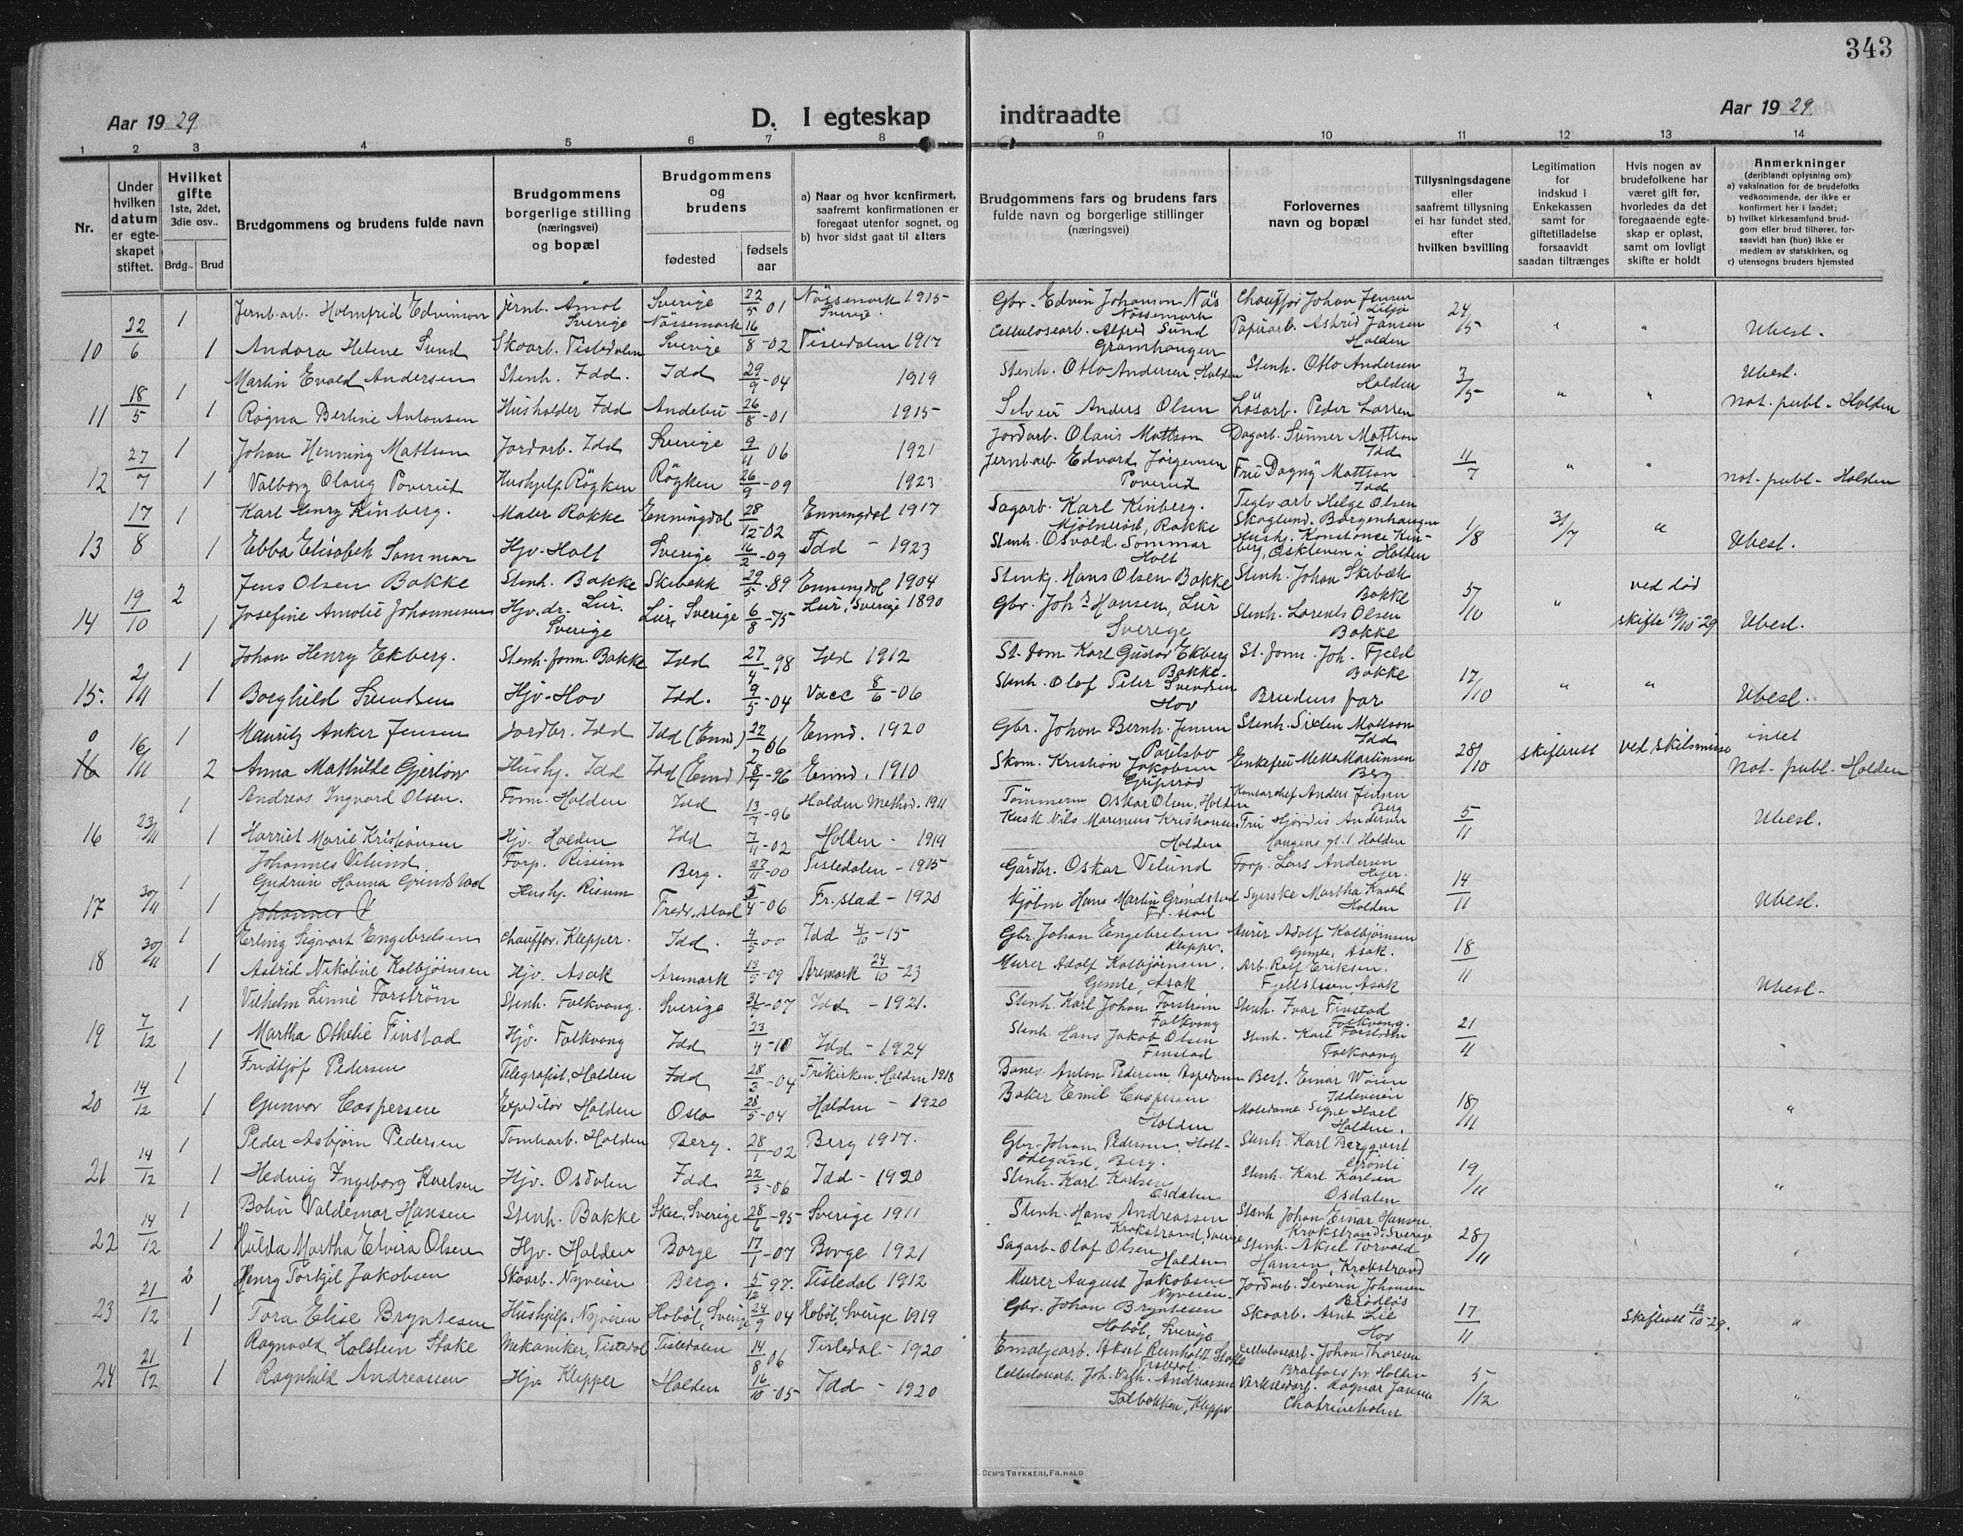 343
Aar 19 29
D. I egteskap indtraadte
Aar 19 29
1 2 3 4 5 6 7 8 9 10 11 12 13 14
Nr.
Under hvilken datum er egte-skapet stiftet.
Hvilket gifte
1ste, 2det, 3die osv..
Brdg.. Brud
Brudgommens og brudens fulde navn
Brudgommens borgerlige stilling (næringsvei) og bopæl
Brudgommens og brudens
fødested
fødsels aar
a) Naar og hvor kcnfirmert, saafremt konfirmationen er foregaat utenfor sognet, og
b) hvor sidst gaat til alters
Brudgommens fars og brudens fars fulde navn og borgerlige stillinger (næringsvei)
Forlovernes navn og bopæl
Tillysningsdagene eller saafremt tillysning ei har fundet sted, efter hvilken bevilling
Legitimation for indskud i Enkekassen samt for giftetilladelse forsaavidt saadan tiltrænges
Hvis nogen av brudefolkene har været gift før, hvorledes da det foregaaende egte-skap er opløst, samt om lovligt skifte er holdt
Anmerkninger
(deriblandt oplysning om)
a) vaksination for de brudefolks vedkommende, der ikke er konfirmert her i landet;
b) hvilket kirkesamfund brud-gom eller brud tilhører, for-saavidt han (hun) ikke er medlem av statskirken, og
c) utensogns bruders hjemsted
1 Jernb.arb. Holmfrid Edvinson Jernb. Amol Sverige Sverige 22/5 01 Nössemark 1915 Sverige Gbr. Edvin Johanson Näs Nössemark Chauffør Johan Jensen 24/5
10 22/6 1 Andora Helene Sund Skoarb. Tistedalen Nössemark Sverige 16/8-02 Tistedalen 1917 Cellulosearb. Alfred Sund Papirarb. Astrid Jansen Halden " " Ubesl.
1 Martin Evald Andersen Stenh. Idd. Idd 29/9-04 1919 Stenh. Otto Andersen, Halden Stenh. Otto Andersen Halden 3/5 Ubesl.
11 18/5 1 Ragna Bertine Antonsen Husholder Idd Andebu 26/8-01 1915 Anders Olsen Løsarb. Peder Larsen " " not. publ. Halden
1 Johan Henning Mattson Jordarb. Idd Sverige 9/11 06 1921 Jordarb. Olaus Mattson Dagarb. Gunnar Mattson Idd 11/7
12 27/7 1 Valborg Olaug Poverud Hushjelp Røyken Røyken 26/9-09 1923 Jernb.arb Edvard Jørgensen Poverud Fru Dagny Mattson Idd " " not. publ. Halden
1 Karl Henry Kinberg. Maler Rokke Enningdal 28/12-02 Enningdal 1917 Sagarb. Karl Kinberg. Rokke Teglv.arb Helge Olsen Skoglund. Borgenhaugen 1/8 31/7 "
13 17/8 1 Ebba Elisabeth Sommar Hjv. Holt Sverige 16/2-09 Idd - 1923 Stenh. Osvald Sommar Holt Hush. Konstance Kin-berg, i Halden Ubesl.
2 Jens Olsen Bakke Stenh. Bakke Skibekk 29/5-89 Enningdal 1904 Stenh. Hans Olsen Bakke Stenh. Johan Skibæk Bakke 5/10 " ved død
14 19/10 1 Josefine Amalie Johannesen Hjv. dr. Lur. Sverige Lur, Sverige 6/8-75 Lur, Sverige 1890 Gbr. Johs Hansen, Lur Sverige Stenh. Lorents Olsen Bakke skifte 19/10-29 Ubesl.
1 Johan Henry Ekberg. Stenh. form. Bakke Idd 27/4-98 Idd 1912 St. form Karl Gustav Ekberg Bakke St. form. Joh. Fjeld Bakke 17/10
15. 2/11 1 Borghild Svendsen Hjv. Hov Idd. 9/5-04 Vacc 8/6-06 Stenh. Olaf Peter Svendsen Hov Brudens far " " Ubesl.
0 1 Mauritz Anker Jensen Jordbr. Idd Idd (Ennd) 27/2 06 Ennd. 1920 Gbr. Johan Bernh. Jensen Stenh. Sixten Mattson Idd 28/10 skifterett ved skilsmisse intet
16 16/11 2 Anna Mathilde Gjerløw Hushj. Idd Idd (Ennd) 8/7-96 Ennd. 1910 Skom. Kristian Jakobsen Enkefru Mette Martinsen Berg Not. publ. Halden
1 Andreas Ingvard Olsen. Form. Halden Idd 13/7-96 Halden Method. 1911 Tømmerm Oskar Olsen, Halden Kontorchef Anders Jensen Berg 5/11 Ubesl.
16 23/11 1 Harriet Marie Kristiansen Hjv. Halden Idd 7/11-02 Halden - 1919 Kusk Nils Marenius Kristiansen Halden Fru Hjørdis Andersen Haugens gt. 1. Halden
1 Johannes Vilund Forp. Risum Berg. 27/11-00 Tistedalen - 1915 Gårdbr. Oskar Vilund Forp. Lars Andersen 14/11
17 30/11 1 Gudrun Hanna Grindstad Johannes V Hushj. Risum Fredr.stad 5/4-06 Fr.stad - 1920 Kjøbm Hans Martin Grindstad Fr. stad Syerske Martha Halden Ubesl.
1 Erling Sigvart Engebretsen Chauffør, Klepper. Idd. 4/5-00 Idd 4/10-15 Gbr. Johan Engebretsen Klepper. Murer Adolf Kolbjørnsen Gimle, Asak 18/11
18 30/11 1 Astrid Nikoline Kolbjørnsen Hjv. Asak Aremark 13/9-09 Aremark 24/10-23 Murer Adolf Kolbjørnsen. Gimle, Asak Arb. Rolf Eriksen. Asak Ubesl.
1 Vilhelm Linné Forström Stenh. Folkvang. Sverige -07 Idd - 1921. Stenh. Karl Johan Forström Folkvang Stenh. Ivar Finstad Folkvang. 21/11
19 7/12 1 Martha Othelie Finstad Hjv. Folkvang Idd 23/4-10 Idd - 1924 Stenh. Hans Jakob Olsen Finstad Stenh. Karl Forström Folkvang "
1 Fridtjof Pedersen Telegrafist, Halden Idd 28/3-04 Frikirken, Halden 1918 Anton Pedersen, Best. Einar Iddeveien 18/11
20 14/12 1 Gunvor Caspersen Expeditør Halden Oslo 28/5-04 Halden - 1920 Baker Emil Caspersen Halden Motedame Signe Halden. "
1 Peder Asbjørn Pedersen Tomtarb. Halden Berg. 28/1-02 Berg 1917. Gbr. Johan Pedersen, Holt-ødegård, Berg. Stenh. Karl Bergqvist Grønli 19/11
21 14/12 1 Hedvig Ingeborg Karlsen Hjv. Osdalen Idd 22/3-06 Idd - 1920 Stenh. Karl Karlsen Osdalen Stenh. Karl Karlsen Osdalen "
1 Valdemar Hansen Stenh. Bakke Skee, Sverige 28/6-95 Sverige 1911 Stenh. Hans Andreassen Krokstrand, Sverige Stenh Johan Einar Hansen. Krokstrand, Sverige 28/11
22 14/12 1 Hulda Martha Elvira Olsen Hjv. Halden Borge 17/1-07 Borge 1921 Sagarb. Olaf Olsen Halden Stenh. Aksel Torvald Hansen, Krokstrand "
2 Henry Torkil Jakobsen Skoarb. Nyveien Berg. 5/12 97. Tistedal 1912 Murer August Jakobsen Nyveien. Jordarb. Severin Johansen 17/11
23 21/12 1 Tora Elise Bryntesen Hushjelp, Nyveien Hoböl, Sverige 24/9 04 Hoböl, Sverige 1919 Gbr. Johan Bryntesen Hoböl, Sverige Skoarb. Arnt Lie Hov Skifterett 12/10-29. "
1 Ragnvald Holstein Stake Mekaniker, Tistedal Tistedalen 14/8 06 Tistedal - 1920 Emaljearb. Aksel Reinholt Stake Tistedal. Cellulosearb. Johan Thoresen Halden 5/12
24 21/12 1 Ragnhild Andreassen Hjv Klepper Halden 16/10-05 Idd - 1920 Cellulosearb. Joh. Vilh. Andreassen Solbakken, Klepper Verkstedarb. Ragnar Jansen Chatrineholm "
GEM'S TRYKKERI, FR.HALD